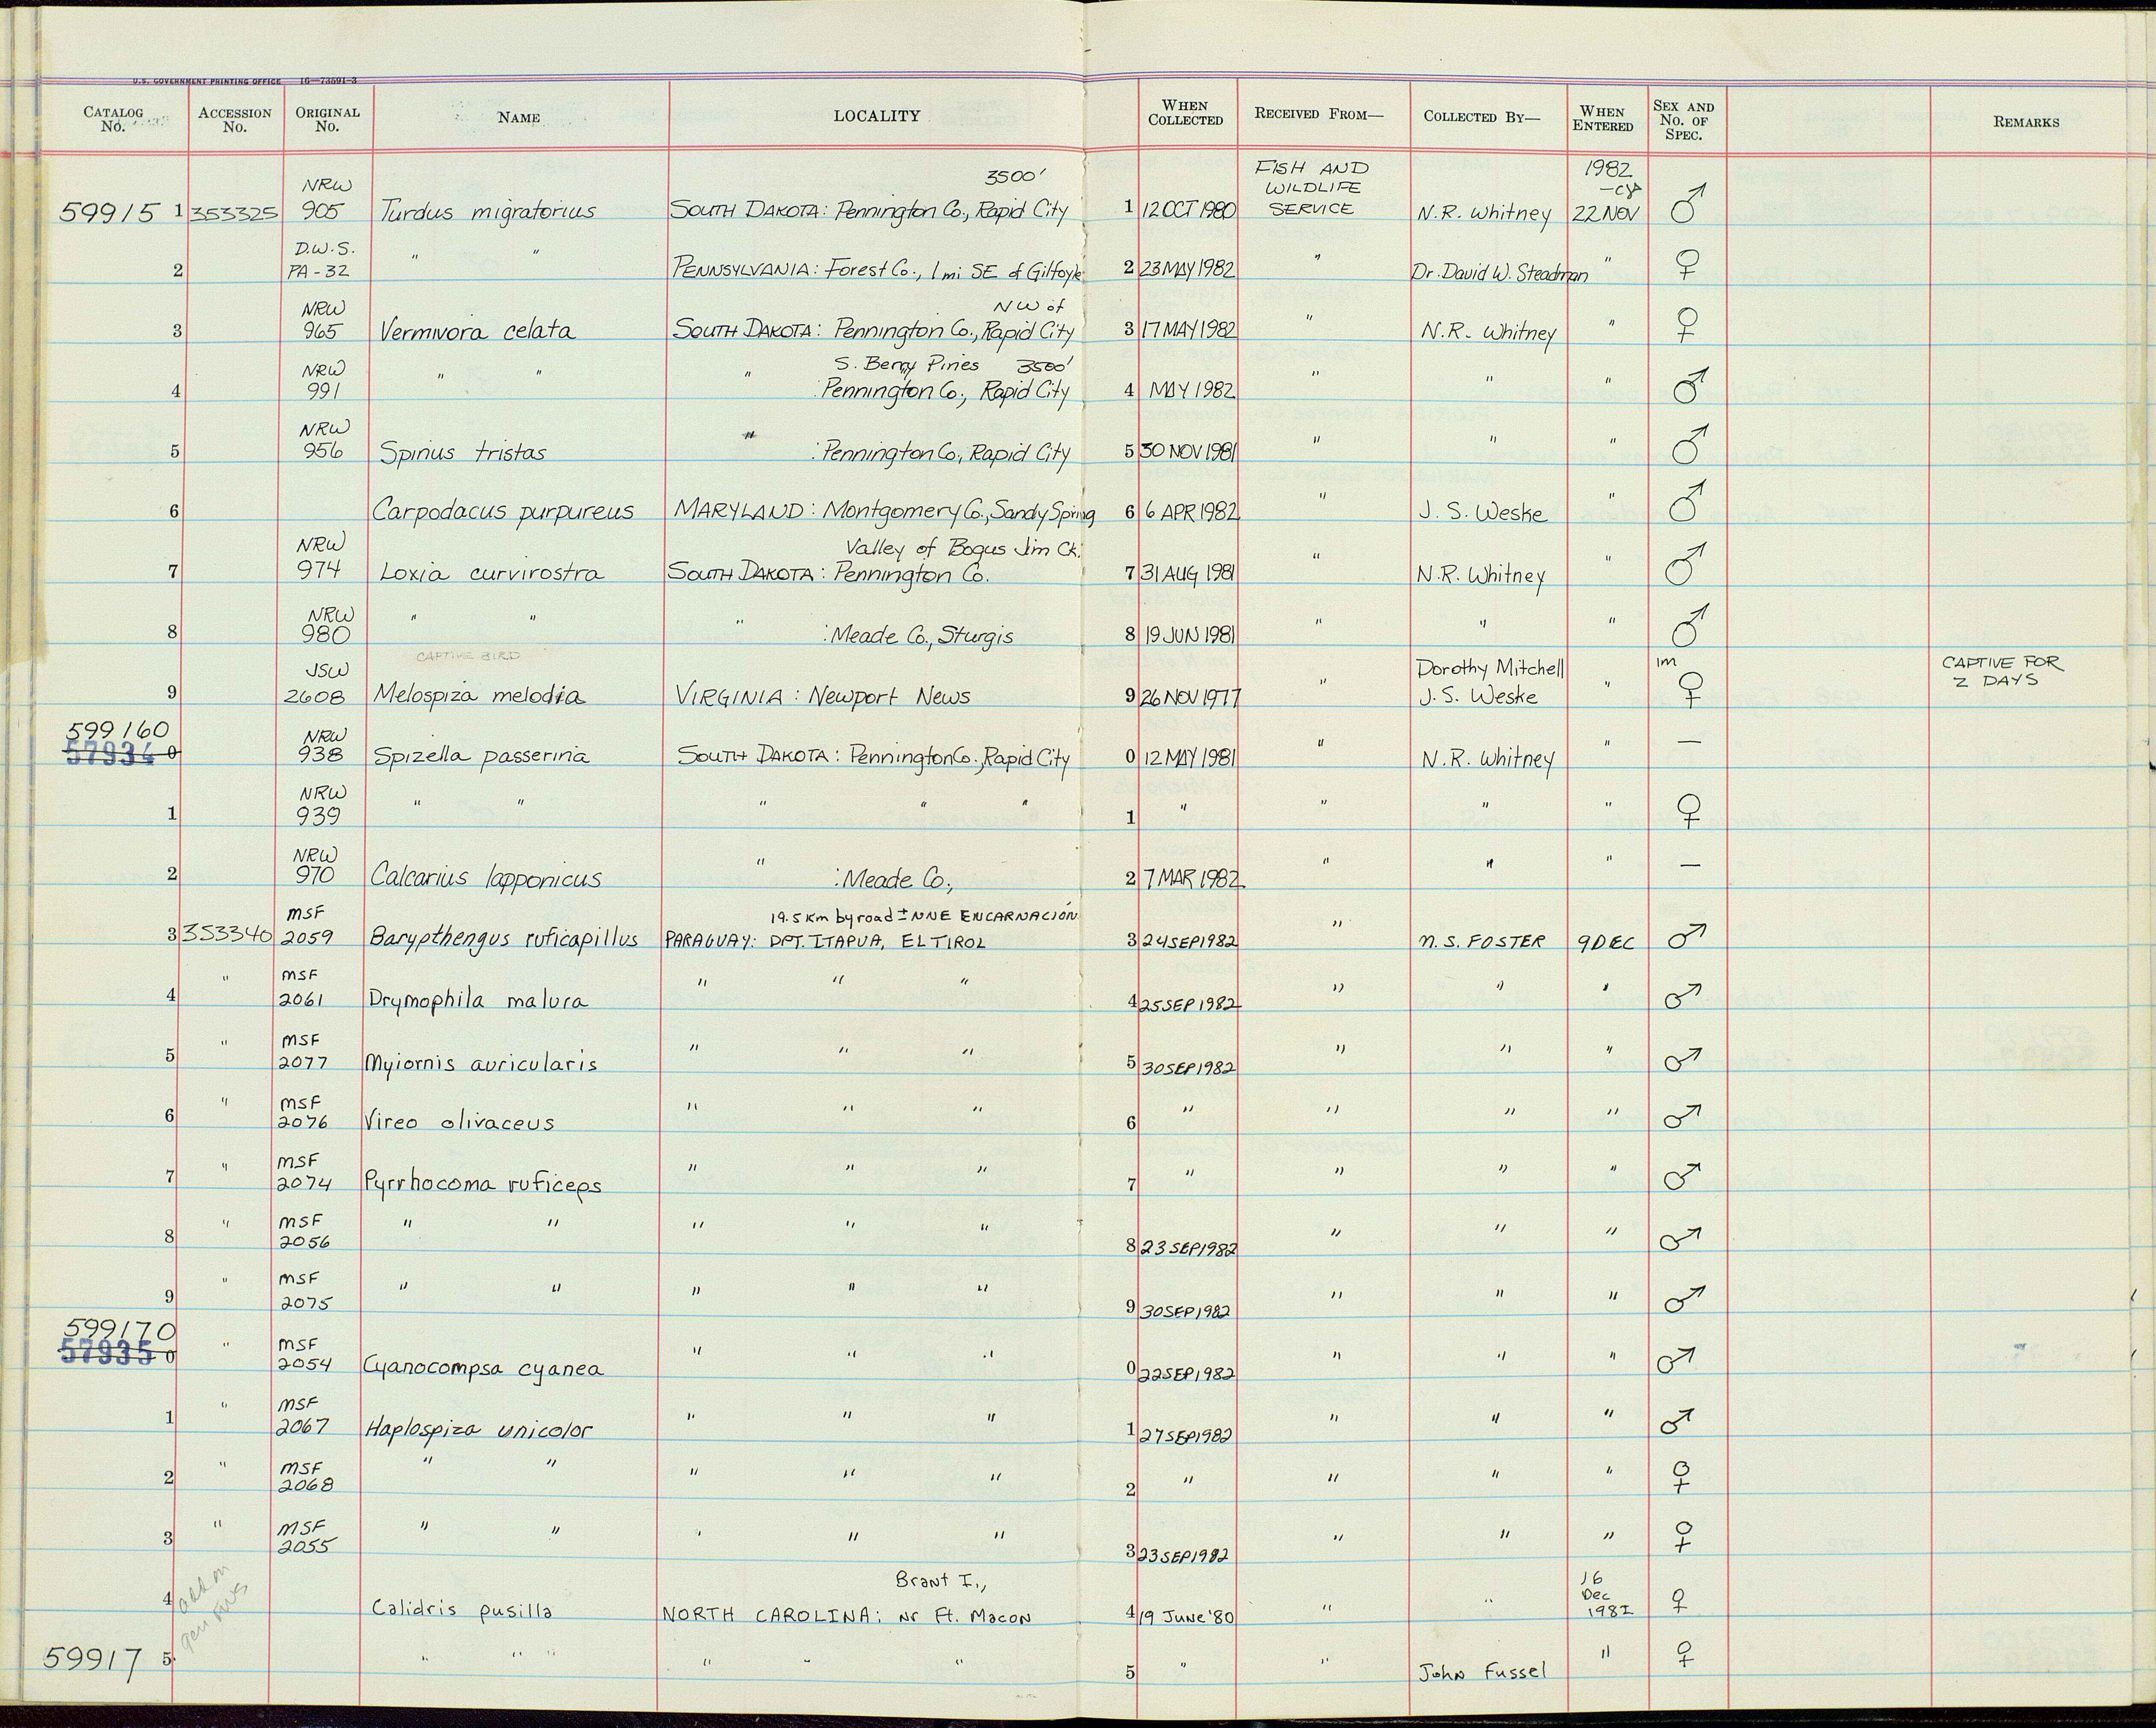 U.S. GOVERNMENT PRINTING OFFICE 16—73591-3
CATALOG No. ACCESSION No. ORIGINAL No. NAME LOCALITY WHEN COLLECTED RECEIVED FROM— COLLECTED BY— WHEN ENTERED SEX AND No. OF SPEC. REMARKS
59915 1 353325 NRW 905 Turdus migratorius SOUTH DAKOTA: Pennington Co., Rapid City 3500' 1 12 OCT 1980 FISH AND WILDLIFE SERVICE N.R. Whitney 1982 22 NOV ♂
2 D.W.S. PA-32 " " PENNSYLVANIA: Forest Co., 1 mi SE of Gilfoyle 2 23 MAY 1982 " Dr. David W. Steadman " ♀
3 NRW 965 Vermivora celata SOUTH DAKOTA: Pennington Co., NW of Rapid City 3 17 MAY 1982 " N.R. Whitney " ♀
4 NRW 991 " " " S. Berry Pines 3500' : Pennington Co., Rapid City 4 MAY 1982 " " " ♂
5 NRW 956 Spinus tristas " : Pennington Co., Rapid City 5 30 NOV 1981 " " " ♂
6 Carpodacus purpureus MARYLAND: Montgomery Co., Sandy Spring 6 6 APR 1982 " J. S. Weske " ♂
7 NRW 974 Loxia curvirostra Valley of Bogus Jim Ck. SOUTH DAKOTA: Pennington Co. 7 31 AUG 1981 " N.R. Whitney " ♂
8 NRW 980 " " " : Meade Co., Sturgis 8 19 JUN 1981 " " " ♂
CAPTIVE BIRD
9 JSW 2608 Melospiza melodia VIRGINIA: Newport News 9 26 NOV 1977 " Dorothy Mitchell J.S. Weske " im ♀ CAPTIVE FOR 2 DAYS
599160
57934 0 NRW 938 Spizella passerina SOUTH DAKOTA: Pennington Co., Rapid City 0 12 MAY 1981 " N.R. Whitney " —
1 NRW 939 " " " " " 1 " " " " ♀
2 NRW 970 Calcarius lapponicus " : Meade Co., 2 7 MAR 1982 " " " —
3 353340 MSF 2059 Barypthengus ruficapillus 19.5 Km by road ± NNE ENCARNACIÓN PARAGUAY: DPT. ITAPUA, EL TIROL 3 24 SEP 1982 " M.S. FOSTER 9 DEC ♂
4 " MSF 2061 Drymophila malura " " " 4 25 SEP 1982 " " " ♂
5 " MSF 2077 Myiornis auricularis " " " 5 30 SEP 1982 " " " ♂
6 " MSF 2076 Vireo olivaceus " " " 6 " " " " ♂
7 " MSF 2074 Pyrrhocoma ruficeps " " " 7 " " " " ♂
8 " MSF 2056 " " " " " 8 23 SEP 1982 " " " ♂
9 " MSF 2075 " " " " " 9 30 SEP 1982 " " " ♂
599170
57935 0 " MSF 2054 Cyanocompsa cyanea " " " 0 22 SEP 1982 " " " ♂
1 " MSF 2067 Haplospiza unicolor " " " 1 27 SEP 1982 " " " ♂
2 " MSF 2068 " " " " " 2 " " " " ♀
3 " MSF 2055 " " ' " " 3 23 SEP 1982 " " " ♀
4 Calidris pusilla Brant I., NORTH CAROLINA: nr Ft. Macon 4 19 June '80 " " 16 Dec 1982 ♀
59917 5 " " " " " " 5 " " John Fussel " ♀